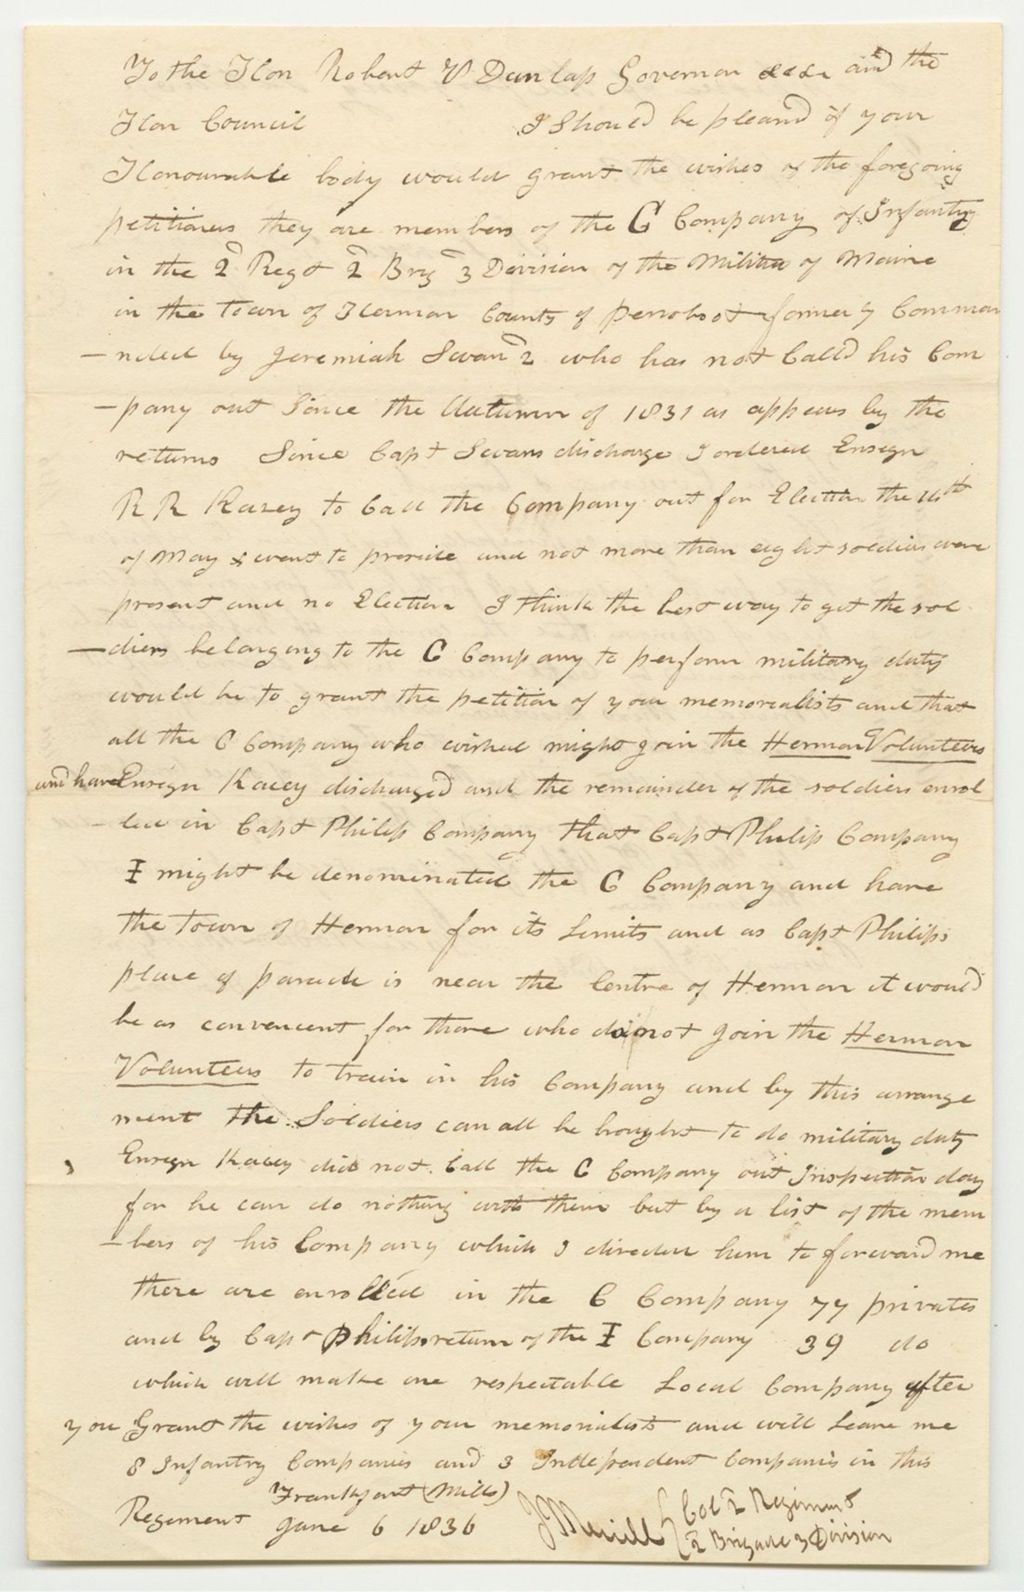 To the Hon Robert P Dunlap Governor &c&c and the
Hon Council I Should be pleasd if your
Honourable body would grant the wishes of the foregoing
petitioners they are members of the C Company of Infantry
in the 2d Regt 2d Brig 3 Division of the Militia of Maine
in the Town of Hermon County of penobscot formerly Comman
-nded by Jeremiah Swan 2d who has not Calld his Com
-pany out Since the Autumn of 1831 as appears by the
returns Since Capt Swans discharge I ordered Ensign
R R Kacey to Call the Company out for Election the 14th
of May & went to preside and not more than eight soldiers were
present and no Election I think the best way to get the sol
-diers belonging to the C Company to perform military duty
would be to grant the petition of your memorialists and that
all the C Company who wished might join the Hermon Volunteers
and have Ensign Kacey dischargd and the remainder of the soldiers enrol
-led in Capt Philips Company that Capt Philip Company
I might be denominated the C Company and have
the Town of Hermon for its Limits and as Capt Philips
place of parade is near the Centre of Hermon it would
be as convenient for those who do not join the Hermon
Volunteers to train in his Company and by this arrange
ment the Soldiers can all be bought to do military duty
Ensign Kacey did not Call the C Company out Inspection day
for he can do nothing with them but by a list of the mem
-bers of his Company which I directed him to forward me
there are enrolled in the C Company 77 privates
and by Capt Philips return of the I Company 39 do
which will make one respectable Local Company after
you Grant the wishes of your memorialists and will Leave me
8 Infantry Companies and 3 Independent Companies in this
Regement Frankfort (Mills)
June 6 1836 J Merrill Col 2d Regiment
2 Brigade 3 Division